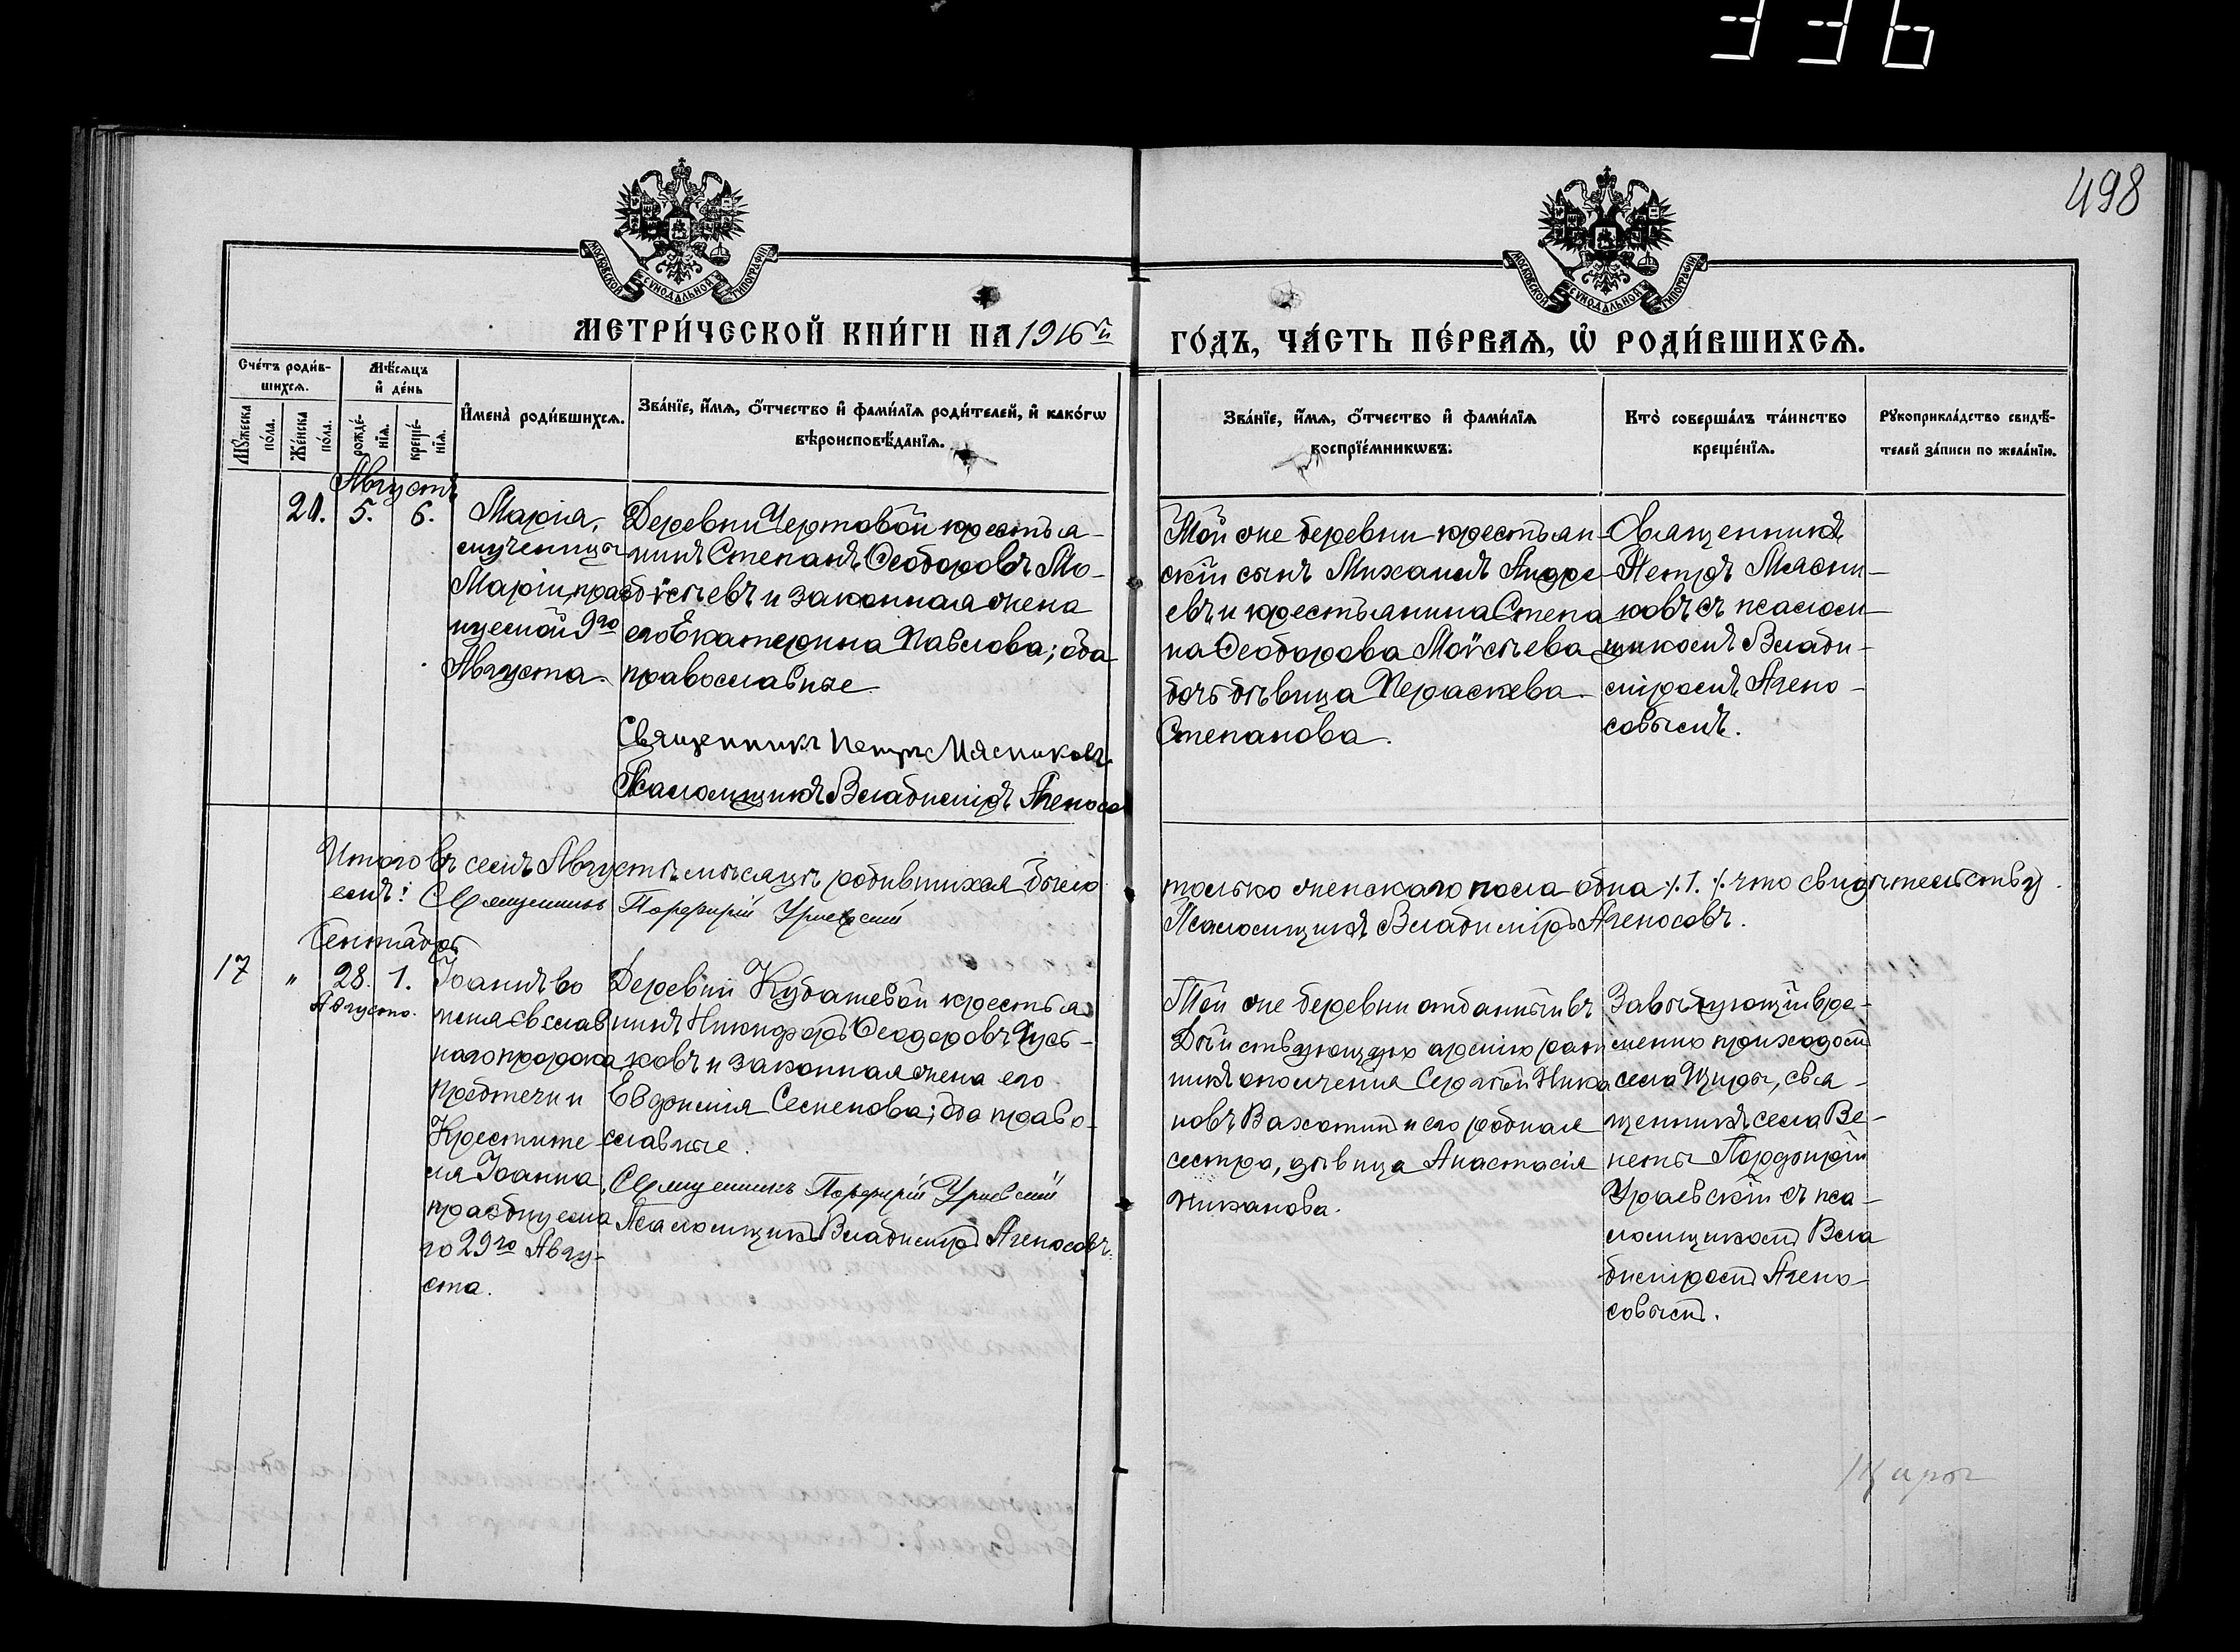 336
498
МОСКОВСКОЙ СѴНОДАЛЬНОЙ ТИПОГРАФІИ
МОСКОВСКОЙ СѴНОДАЛЬНОЙ ТИПОГРАФІИ
МЕТРИ́ЧЕСКОЙ КНИ́ГИ НА 1916й
ГО́ДЪ, ЧА́СТЬ ПЕ́РВАѦ, Ѡ҆ РОДИ́ВШИХСѦ.
Сче́тъ роди́в-
шихсѧ.
Мꙋ́жеска
по́ла.
Же́нска
по́ла.
Мѣ́сѧцъ
и҆ де́нь
рожде́-
нїѧ.
креще́-
нїѧ.
И҆мена̀ роди́вшихсѧ.
Зва́нїе, и҆́мѧ, ѻ҆́тчество и҆ фами́лїѧ роди́телей, и҆ како́гѡ
вѣроисповѣ́данїѧ.
Зва́нїе, и҆́мѧ, ѻ҆́тчество и҆ фами́лїѧ
воспрїе́мникѡвъ.
Кто̀ соверша́лъ та́инство
креще́нїѧ.
Рꙋкоприкла́дство свидѣ́-
телей за́писи по жела́нїю.
Августъ
20.
5.
6.
Марія,
мученицы
Маріи, празд
нуемой 9го
Августа.
Деревни Чертовой крестья-
нинъ Степанъ Ѳеодоровъ Мо-
ѵсѣевъ и законная жена
его Екатерина Павлова; оба
православные.
Священникъ Петръ Мясниковъ.
Псаломщикъ Владиміръ Агеносо
Той же деревни крестьян-
скій сынъ Михаилъ Андре-
евъ и крестьянина Степа
на Ѳеодорова Моѵсѣева
дочь дѣвица Параскева
Степанова.
Священникъ
Петръ Мясни-
ковъ съ псалом-
щикомъ Влади-
міромъ Агено-
совымъ.
Итого въ семъ Августѣ мѣсяцѣ родившихся было
емъ: Священникъ Порфирій Ураевскій
только женскаго пола одна %1.% что свидѣтельству
Псаломщикъ Владиміръ Агеносовъ.
Сентябрь
17
"
28.
1.
Августа.
Іоаннъ во
имя Св слав
наго пророка
Предтечи и
Крестите
ля Іоанна,
празднуема
го 29го Авгу-
ста.
Деревни Кудашевой крестья
нинъ Никифоръ Ѳеодоровъ Гусь-
ковъ и законная жена его
Евдокимія Семенова; оба право-
славные.
Священникъ Порфирій Ураевскій
Псаломщикъ Владиміръ Агеносовъ.
Той же деревни отданный въ
Дѣйствующую армію рат
никъ ополченія Сергѣй Ника
новъ Вахотинъ и его родная
сестра, дѣвица Анастасія
Никанова.
Завѣдующій вре-
менно приходомъ
села Щиры, свя-
щенникъ села Ве-
Порфирій
Ураевскій съ пса-
ломщикомъ Вла
диміромъ Агено-
совымъ.